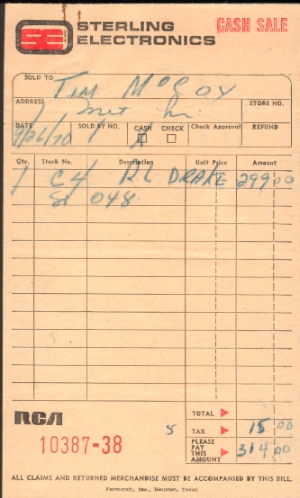 SE STERLING ELECTRONICS CASH SALE
SOLD TO Tim McCoy
ADDRESS STORE NO.
DATE SOLD BY NO. CASH CHECK Check Approval REFUND
9/26/70 1
Qty. Stock No. Description Unit Price Amount
1 C4 R L DRAKE 299 00
S# 048
RCA TOTAL
10387-38 5 TAX 15 00
PLEASE PAY THIS AMOUNT 314 00
ALL CLAIMS AND RETURNED MERCHANDISE MUST BE ACCOMPANIED BY THIS BILL.